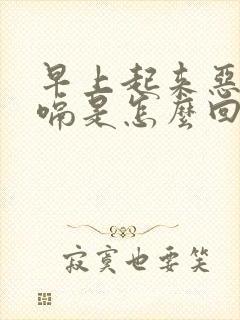 早上起来恶
嗝是怎麼回
寂寞也要笑